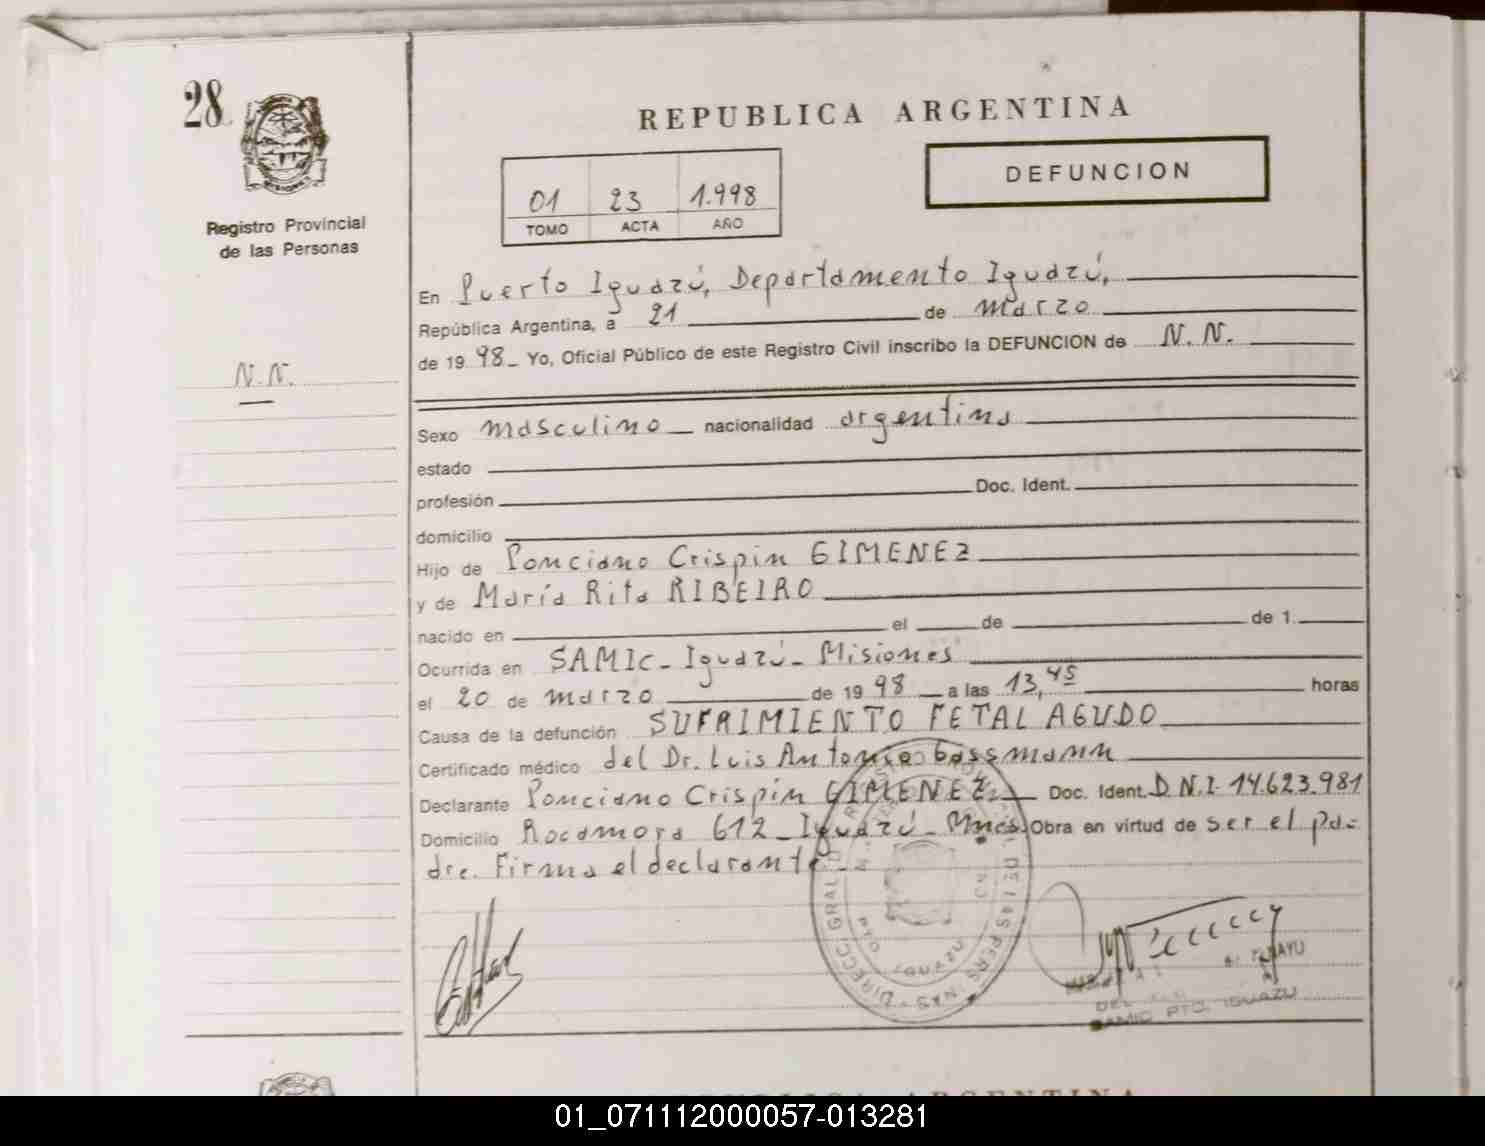 28
REPUBLICA ARGENTINA
DEFUNCION
01 23 1.998
TOMO ACTA AÑO
Registro Provincial
de las Personas
En Puerto Iguazú, Departamento Iguazú,
República Argentina, a 21 de marzo
de 1998 Yo, Oficial Público de este Registro Civil inscribo la DEFUNCION de N.N.
N.N.
Sexo masculino nacionalidad argentina
estado
profesión Doc. Ident.
domicilio
Hijo de Ponciano Crispin GIMENEZ
y de María Rita RIBEIRO
nacido en el de de 1
Ocurrida en SAMIC - Iguazú - Misiones
el 20 de marzo de 1998 a las 13,45 horas
Causa de la defunción SUFRIMIENTO FETAL AGUDO
Certificado médico del Dr. Luis Antonio Gassmann
Declarante Ponciano Crispin GIMENEZ Doc. Ident. D.N.I. 14.623.981
Domicilio Rocamora 612 - Iguazú - Mnes. Obra en virtud de ser el pa-
dre. Firma el declarante.
DIRECC GRAL D
PTO. IGUAZU
SAMIC PTO. IGUAZU
REPUBLICA ARGENTINA
01_071112000057-013281